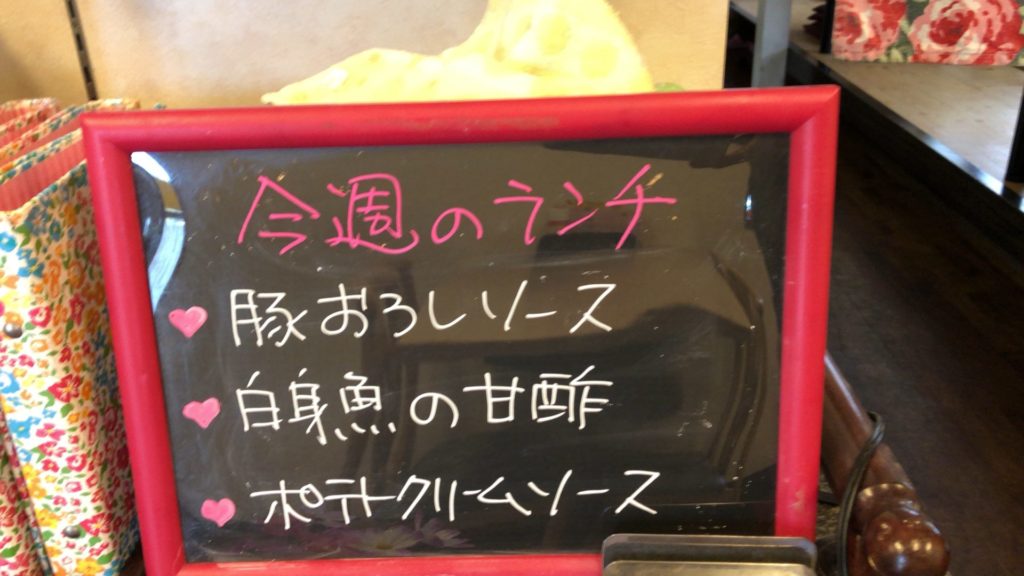 今週のランチ
豚おろしソース
白身魚の甘酢
ポテトクリームソース